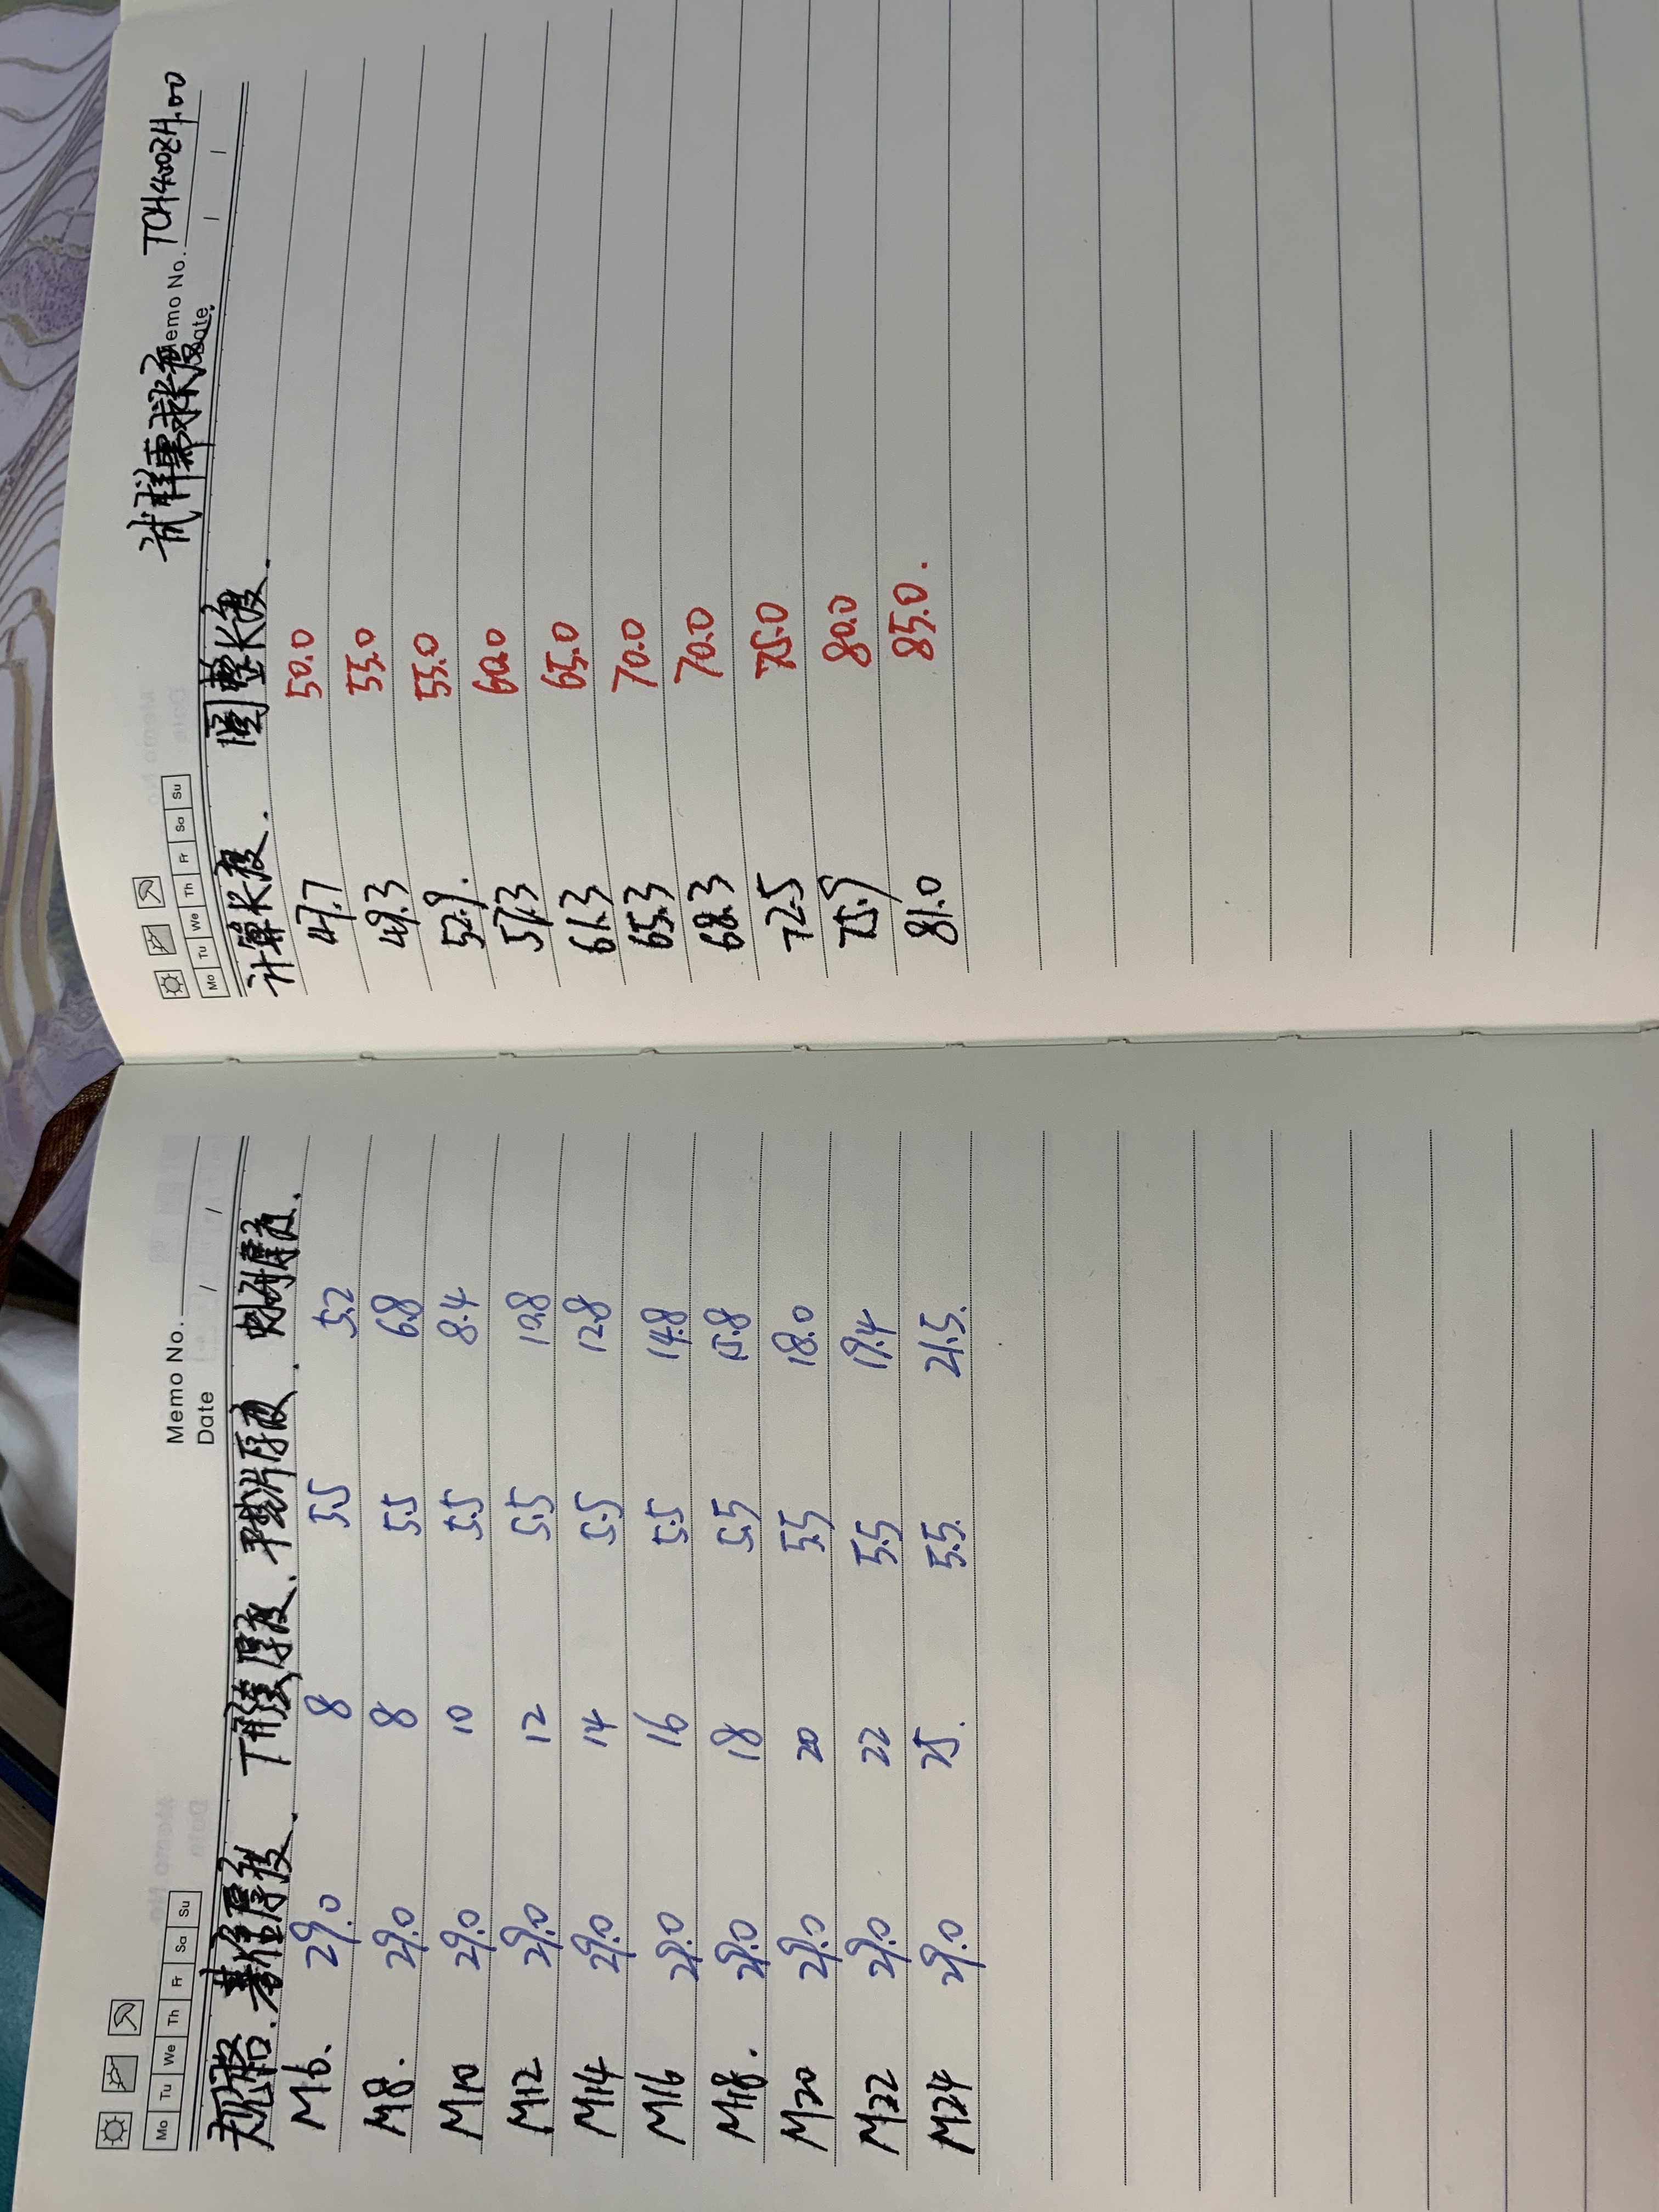 Mo Tu We Th Fr Sa Su
Memo No.
Date / /
规格. 基准厚度. 厚度、 平垫片厚度. 螺母厚度.
M6、 29.0 8 5.5 5.2
M8. 29.0 8 5.5 6.8
M10 29.0 10 5.5 8.4
M12 29.0 12 5.5 10.8
M14 29.0 14 5.5 12.8
M16 29.0 16 5.5 14.8
M18. 29.0 18 5.5 15.8
M20 29.0 20 5.5 18.0
M22 29.0 22 5.5 19.4
M24 29.0 25. 5.5. 21.5.
试样需求长度
Mo Tu We Th Fr Sa Su
Memo No. TCH4.002H.00
Date / /
计算长度. 圆整长度.
47.7 50.0
49.3 55.0
52.9. 55.0
57.3 60.0
61.3 65.0
65.3 70.0
68.3 70.0
72.5 75.0
75.9 80.0
81.0 85.0.